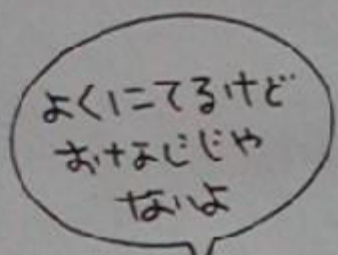 よくにてるけど
おなじじゃ
ないよ